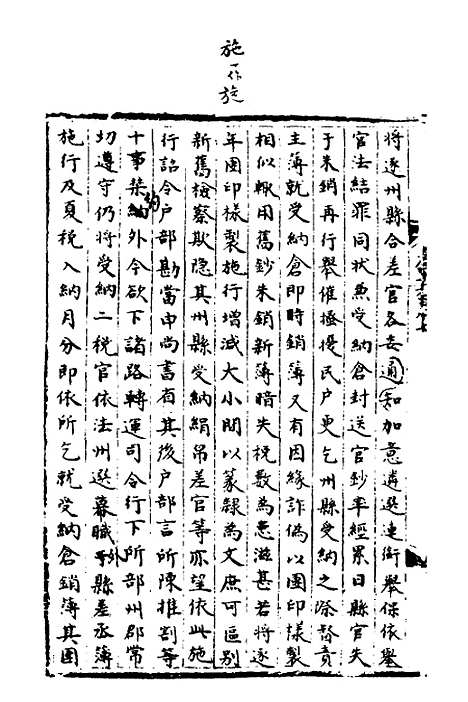 施一作旋
將逐州縣合差官各委通知加意遴選連銜舉保依舉
官法結罪同狀兼受納倉封送官鈔率經累日縣官失
于朱銷再行舉催搔擾民戶更乞州縣受納之際督責
主薄就受納倉即時銷簿又有因緣詐偽以團印樣製
相似輙用舊鈔朱銷新薄暗失稅數為患滋甚若將逐
年團印樣製施行增減大小間以篆隸為文庶可區別
新舊檢察欺隱其州縣受納絹帛差官等亦望依此施
行詔令戶部勘當申尚書省其後戶部言所陳推割等
十事除納外今欲下諸路轉運司令行下所部州郡常
切遵守仍將受納二稅官依法州選幕職外縣差丞薄
施行及夏稅入納月分即依所乞就受納倉銷薄其團